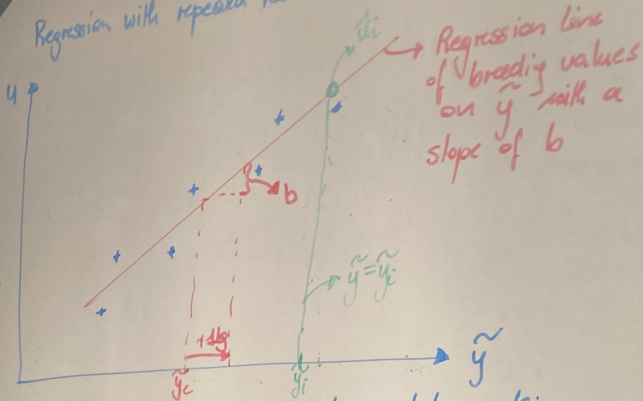 Regression with repeated
u
ûi
Regression Line
of breedig values
on ỹ with a
slope of b
b
ỹ = ỹi
+ 1kg
ỹc
ỹi
ỹ